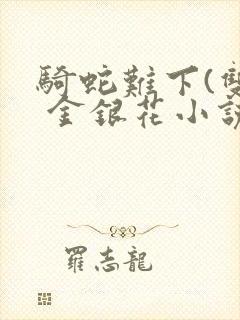 騎蛇難下(雙
金銀花小說
羅志龍